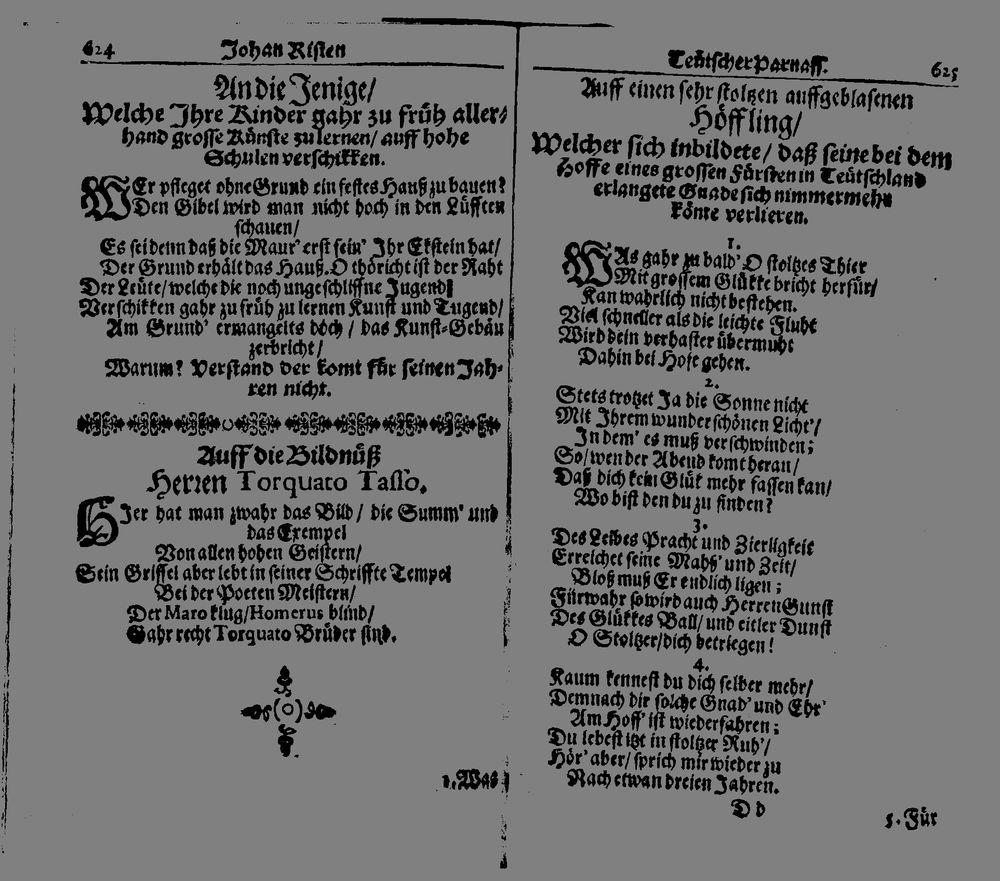 624 Johan Risten
An die Jenige/
Welche Ihre Kinder gahr zu früh aller-
hand grosse Künste zu lernen/ auff hohe
Schulen verschikken.
WEr pfleget ohne Grund ein festes Hauß zu bauen?
Den Gibel wird man nicht hoch in den Lüfften
schauen/
Es sei denn daß die Maur' erst sein' Ihr Ekstein hat/
Der Grund erhält das Hauß. O thöricht ist der Raht
Der Leute/ welche die noch ungeschliffne Jugend
Verschikken gahr zu früh zu lernen Kunst und Tugend/
Am Grund' ermangelts doch/ das Kunst-Gebäu
zerbricht/
Warum? Verstand der komt für seinen Jah-
ren nicht.
Auff die Bildnüß
Herren Torquato Tasso.
HIer hat man zwahr das Bild/ die Summ' und
das Exempel
Von allen hohen Geistern/
Sein Griffel aber lebt in seiner Schriffte Tempel
Bei der Poeten Meistern/
Der Maro klug/ Homerus blind/
Gahr recht Torquato Brüder sind.
1. Was
Teütscher Parnass. 625
Auff einen sehr stoltzen auffgeblasenen
Höffling/
Welcher sich inbildete/ daß seine bei dem
Hoffe eines grossen Fürsten in Teütschland
erlangete Gnade sich nimmermehr
könte verlieren.
1.
WAs gahr zu bald' O stoltzes Thier
Mit grossem Glükke bricht herfür/
Kan wahrlich nicht bestehen.
Viel schneller als die leichte Fluht
Wird dein verhaster übermuht
Dahin bei Hofe gehen.
2.
Stets trotzet Ja die Sonne nicht
Mit Ihrem wunderschönen Licht'/
In dem' es muß verschwinden;
So/ wen der Abend komt heran/
Daß dich kein Glük mehr fassen kan/
Wo bist den du zu finden?
3.
Des Leibes Pracht und Zierligkeit
Erreichet seine Mahß' und Zeit/
Bloß muß Er endlich ligen;
Fürwahr so wird auch Herren Gunst
Des Glükkes Ball/ und eitler Dunst
O Stoltzer/ dich betriegen!
4.
Kaum kennest du dich selber mehr/
Demnach dir solche Gnad' und Ehr'
Am Hoff' ist wiederfahren;
Du lebest itzt in stoltzer Ruh'/
Hör' aber/ sprich mir wieder zu
Nach etwan dreien Jahren.
D d
5. Für